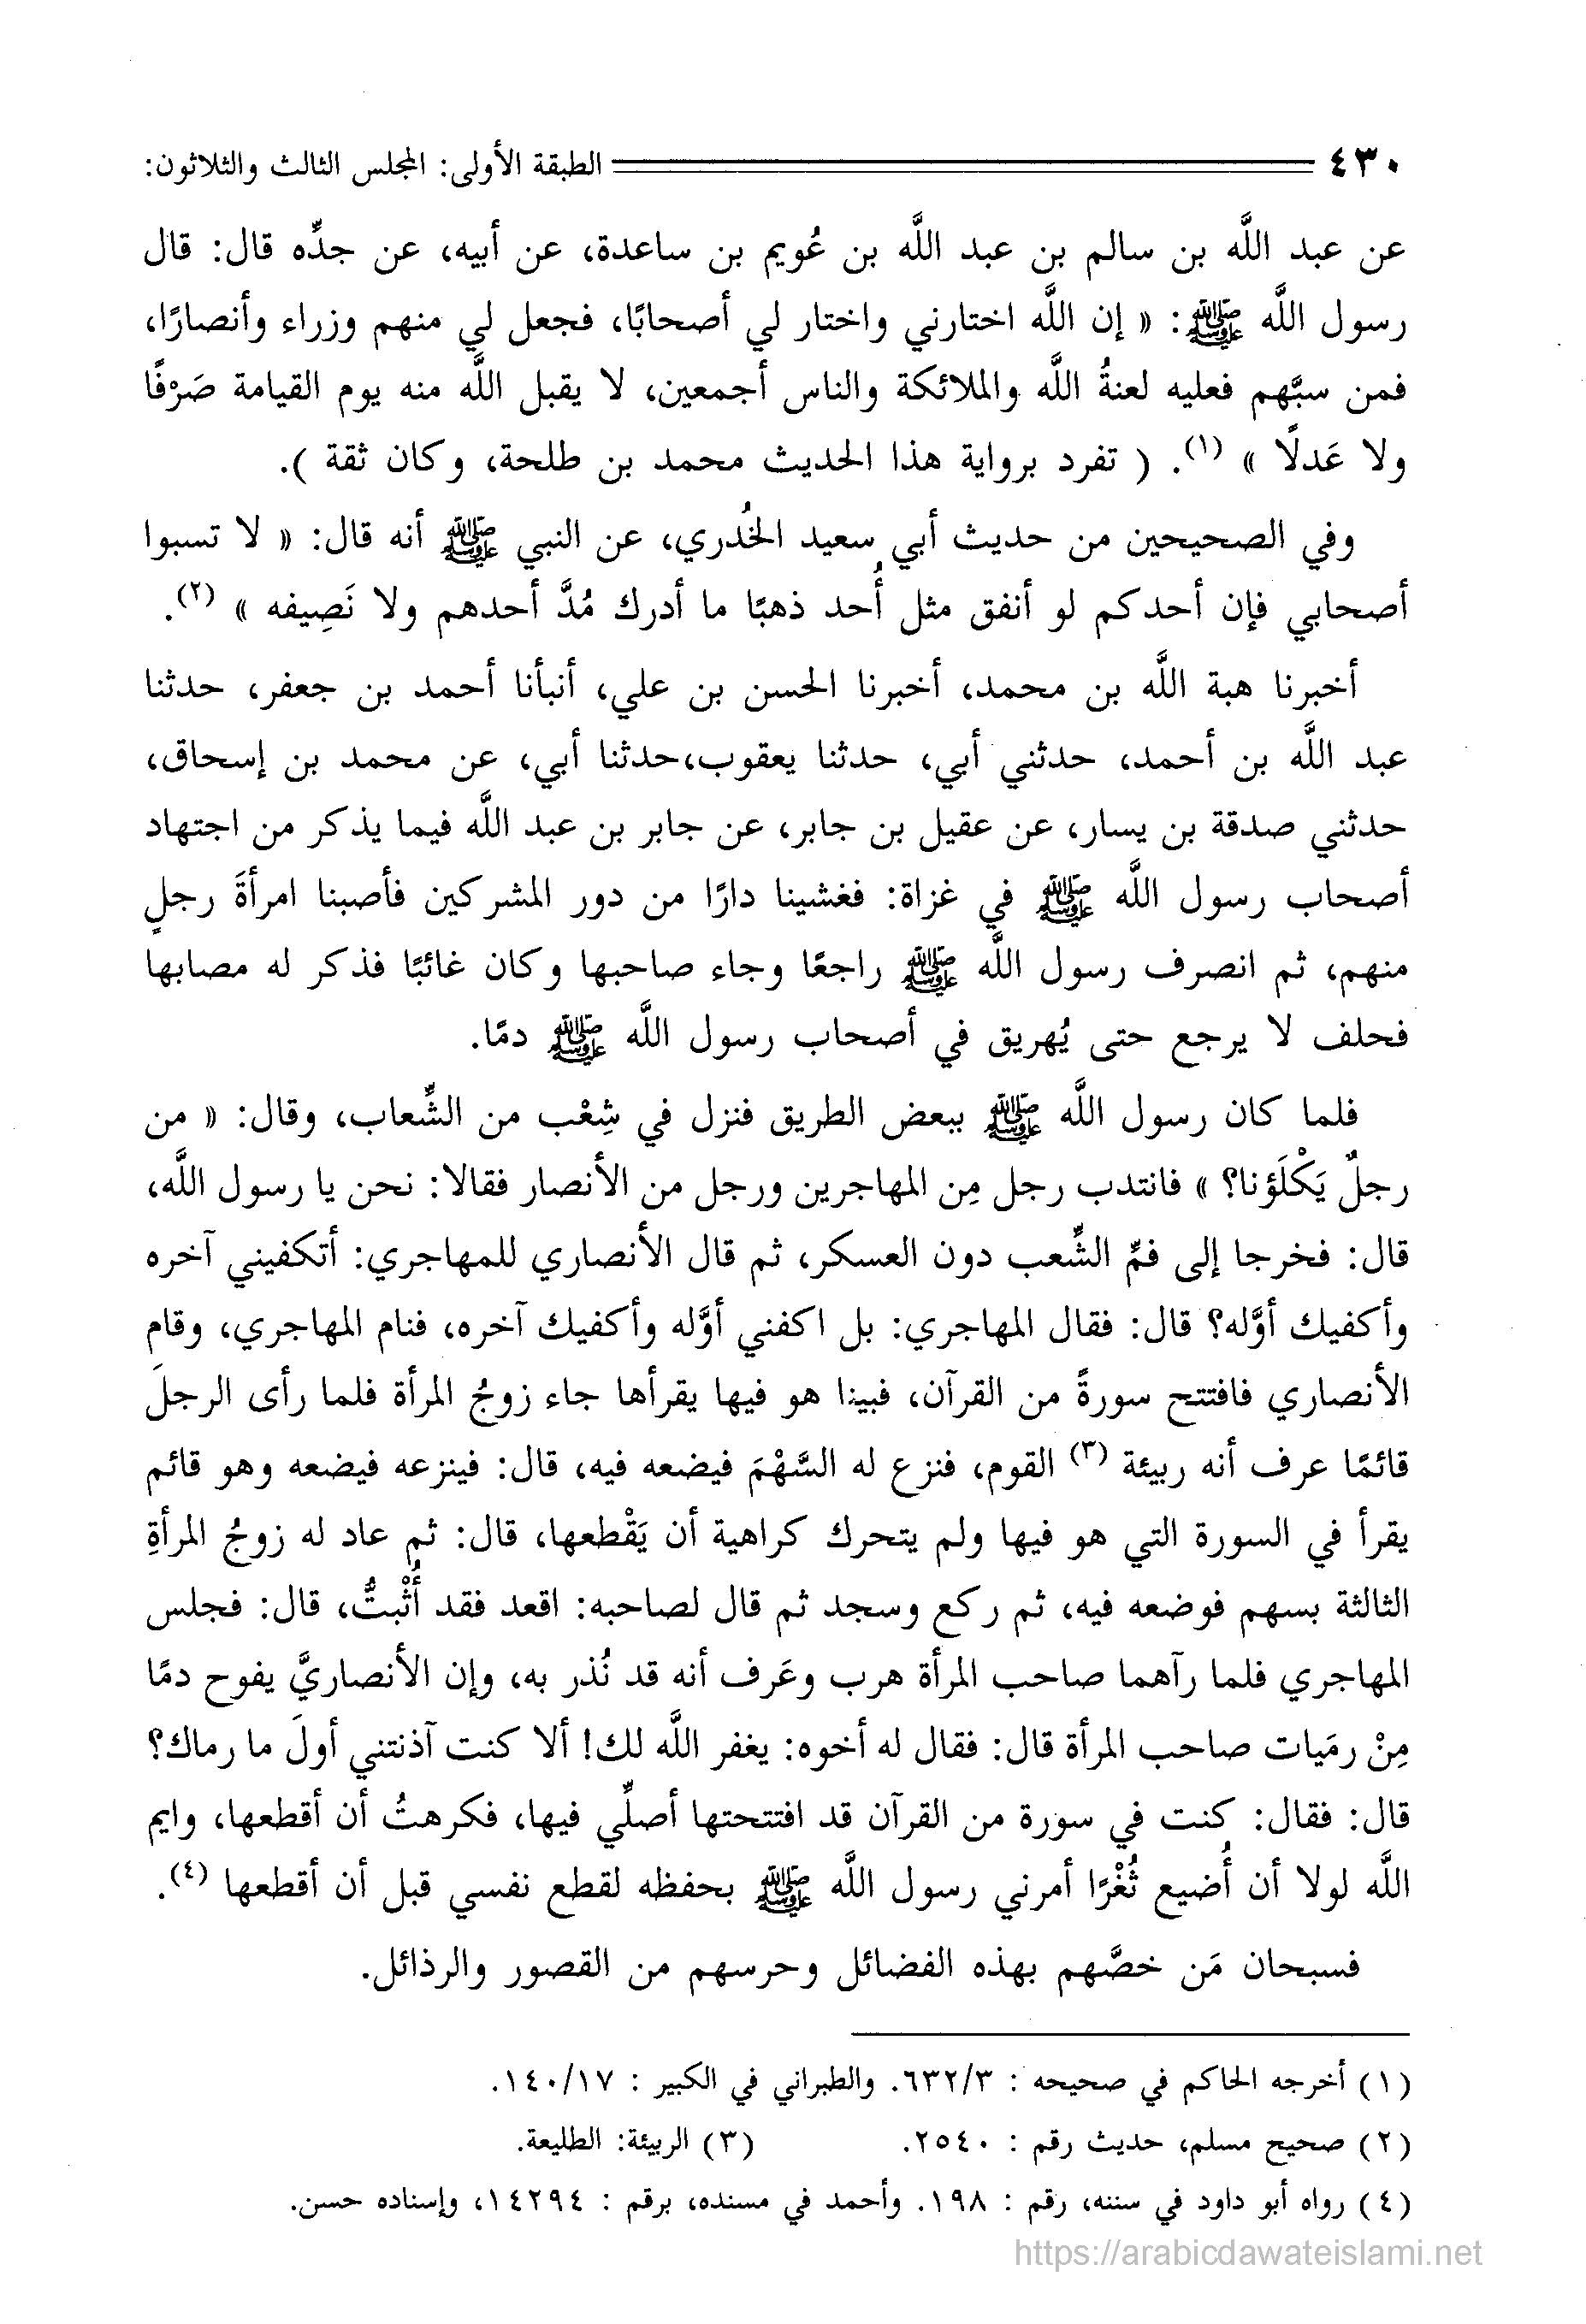 ٤٣٠ الطبقة الأولى: المجلس الثالث والثلاثون:
عن عبد اللَّه بن سالم بن عبد اللَّه بن عُويم بن ساعدة، عن أبيه، عن جدِّه قال: قال
رسول اللَّه ﷺ: « إن اللَّه اختارني واختار لي أصحابًا، فجعل لي منهم وزراء وأنصارًا،
فمن سبَّهم فعليه لعنةُ اللَّه والملائكة والناس أجمعين، لا يقبل اللَّه منه يوم القيامة صَرْفًا
ولا عَدلًا » (١). ( تفرد برواية هذا الحديث محمد بن طلحة، وكان ثقة ).
وفي الصحيحين من حديث أبي سعيد الخُدري، عن النبي ﷺ أنه قال: « لا تسبوا
أصحابي فإن أحدكم لو أنفق مثل أُحد ذهبًا ما أدرك مُدَّ أحدهم ولا نَصِيفه » (٢).
أخبرنا هبة اللَّه بن محمد، أخبرنا الحسن بن علي، أنبأنا أحمد بن جعفر، حدثنا
عبد اللَّه بن أحمد، حدثني أبي، حدثنا يعقوب،حدثنا أبي، عن محمد بن إسحاق،
حدثني صدقة بن يسار، عن عقيل بن جابر، عن جابر بن عبد اللَّه فيما يذكر من اجتهاد
أصحاب رسول اللَّه ﷺ في غزاة: فغشينا دارًا من دور المشركين فأصبنا امرأةَ رجلٍ
منهم، ثم انصرف رسول اللَّه ﷺ راجعًا وجاء صاحبها وكان غائبًا فذكر له مصابها
فحلف لا يرجع حتى يُهريق في أصحاب رسول اللَّه ﷺ دمًا.
فلما كان رسول اللَّه ﷺ ببعض الطريق فنزل في شِعْب من الشِّعاب، وقال: « من
رجلٌ يَكْلَؤنا؟ » فانتدب رجل مِن المهاجرين ورجل من الأنصار فقالا: نحن يا رسول اللَّه،
قال: فخرجا إلى فمِّ الشِّعب دون العسكر، ثم قال الأنصاري للمهاجري: أتكفيني آخره
وأكفيك أوَّله؟ قال: فقال المهاجري: بل اكفني أوَّله وأكفيك آخره، فنام المهاجري، وقام
الأنصاري فافتتح سورةً من القرآن، فبينا هو فيها يقرأها جاء زوجُ المرأة فلما رأى الرجلَ
قائمًا عرف أنه ربيئة (٣) القوم، فنزع له السَّهْمَ فيضعه فيه، قال: فينزعه فيضعه وهو قائم
يقرأ في السورة التي هو فيها ولم يتحرك كراهية أن يَقْطعها، قال: ثم عاد له زوجُ المرأةِ
الثالثة بسهم فوضعه فيه، ثم ركع وسجد ثم قال لصاحبه: اقعد فقد أُثْبتُّ، قال: فجلس
المهاجري فلما رآهما صاحب المرأة هرب وعَرف أنه قد نُذر به، وإن الأنصاريَّ يفوح دمًا
مِنْ رمَيات صاحب المرأة قال: فقال له أخوه: يغفر اللَّه لك! ألا كنت آذنتني أولَ ما رماك؟
قال: فقال: كنت في سورة من القرآن قد افتتحتها أصلِّي فيها، فكرهتُ أن أقطعها، وايم
اللَّه لولا أن أُضيع ثُغْرًا أمرني رسول اللَّه ﷺ بحفظه لقطع نفسي قبل أن أقطعها (٤).
فسبحان مَن خصَّهم بهذه الفضائل وحرسهم من القصور والرذائل.
(١) أخرجه الحاكم في صحيحه : ٦٣٢/٣. والطبراني في الكبير : ١٤٠/١٧.
(٢) صحيح مسلم، حديث رقم : ٢٥٤٠. (٣) الربيئة: الطليعة.
(٤) رواه أبو داود في سننه، رقم : ١٩٨. وأحمد في مسنده، برقم : ١٤٢٩٤، وإسناده حسن.
https://arabicdawateislami.net